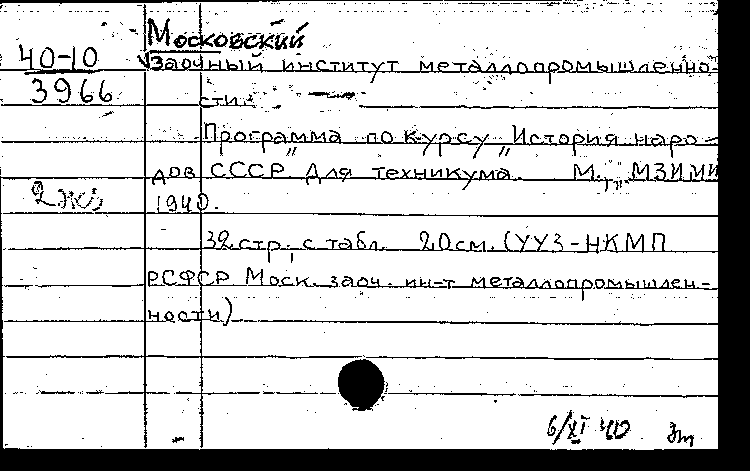 Московский
40-10
3966
Заочный институт металлопромышленно-
сти.
Программа по курсу „История наро-
дов СССР" Для техникума. М., "МЗИМИ
1940.
2 экз
32 стр. с табл. 20 см. (УУЗ-НКМП
РСФСР Моск. заоч. ин-т металлопромышлен-
ности)
6/XI 40